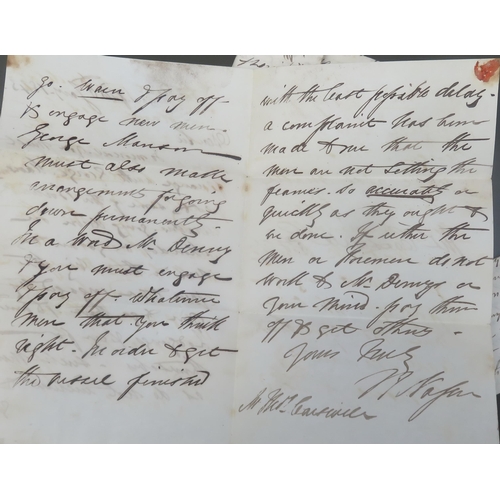 go. Warn & pay off
& engage new men.
George Manson
must also make
arrangement for going
down permanently.
In a word Mr Denny
& you must engage
& pay off whatever
men that you think
right. In order to get
the vessel finished
with the least possible delay.
a complaint has been
made to me that the
men are not setting the
frames so accurately or
quickly as they ought to
be done. If either the
men or foremen do not
work to Mr Dennys or
your mind. pay them
off & get others.
Yours truly
R Napier
Mr